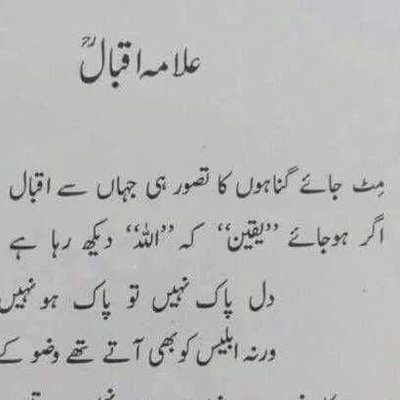 علامہ اقبالؒ
مِٹ جائے گناہوں کا تصور ہی جہاں سے اقبال
اگر ہوجائے ”یقین“ کہ ”اللہ“ دیکھ رہا ہے
دل پاک نہیں تو پاک ہو نہیں
ورنہ ابلیس کو بھی آتے تھے وضو کے